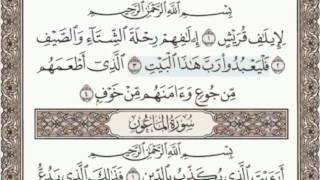 بِسْمِ ٱللَّهِ ٱلرَّحْمَٰنِ ٱلرَّحِيمِ
لِإِيلَٰفِ قُرَيْشٍ ١ إِۦلَٰفِهِمْ رِحْلَةَ ٱلشِّتَآءِ وَٱلصَّيْفِ
٢ فَلْيَعْبُدُوا۟ رَبَّ هَٰذَا ٱلْبَيْتِ ٣ ٱلَّذِىٓ أَطْعَمَهُم
مِّن جُوعٍ وَءَامَنَهُم مِّنْ خَوْفٍۭ ٤
سُورَةُ الْمَاعُونِ
بِسْمِ ٱللَّهِ ٱلرَّحْمَٰنِ ٱلرَّحِيمِ
أَرَءَيْتَ ٱلَّذِى يُكَذِّبُ بِٱلدِّينِ ١ فَذَٰلِكَ ٱلَّذِى يَدُعُّ